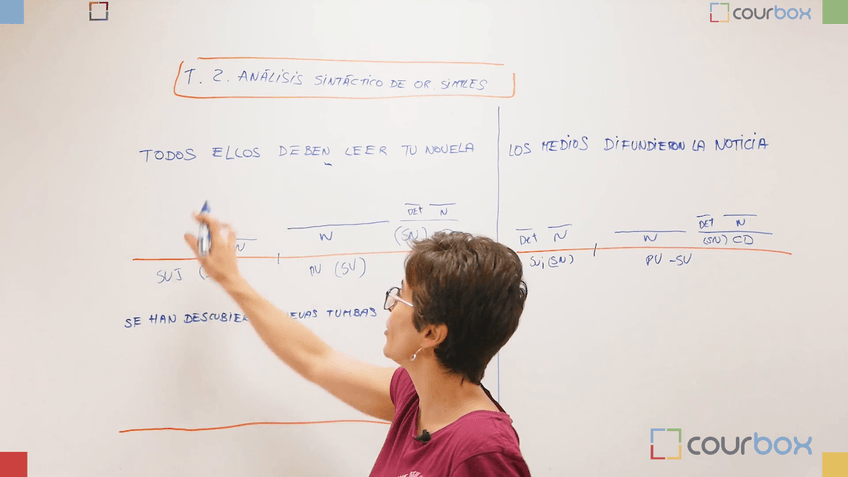 courbox
T. 2. ANÁLISIS SINTÁCTICO DE OR. SIMPLES
TODOS ELLOS DEBEN LEER TU NOVELA
LOS MEDIOS DIFUNDIERON LA NOTICIA
DET N
N N (SN)
SUJ PV (SV)
DET N
DET N N (SN) CD
SUJ (SN) PV - SV
SE HAN TUMBAS
courbox